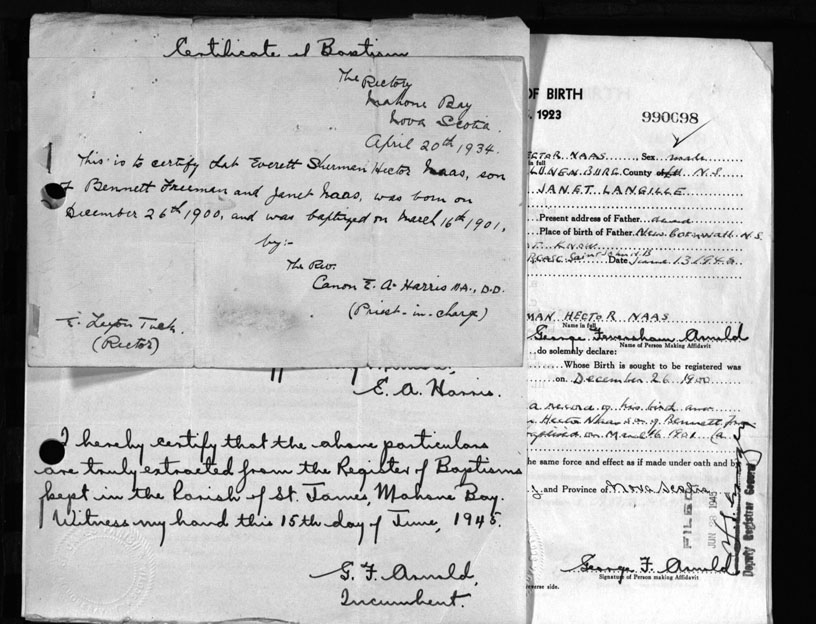 Certificate of Baptism
The Rectory
Mahone Bay
Nova Scotia
April 20th 1934.
This is to certify that Everett Sherman Hector Naas, son
of Bennett Freeman and Janet Naas, was born on
December 26th 1900, and was baptized on March 16th 1901,
by:-
The Rev.
Canon E. A. Harris M.A., D.D.
(Priest-in-charge)
(Rector)
E. A. Harris.
I hereby certify that the above particulars
are truly extracted from the Register of Baptisms
kept in the Parish of St. James, Mahone Bay.
Witness my hand this 15th day of June, 1945.
G. F. Arnold,
Incumbent.
OF BIRTH
1923
990098
HECTOR NAAS Sex male
in full
LUNENBURG County of N.S.
JANET LANGILLE
Present address of Father dead
Place of birth of Father New Cornwall N.S.
KNOW
Saint John N.B. Date June 13 1945
MAN HECTOR NAAS
Name in full
George Feversham Arnold
Name of Person Making Affidavit
do solemnly declare:
Whose Birth is sought to be registered was
on December 26 1900
a record of his birth and
Hector Naas son of Bennett
on March 16 1901 (a
the same force and effect as if made under oath and by
and Province of Nova Scotia
FILED
JUN 1945
Deputy Registrar General
George F. Arnold
Signature of Person making Affidavit
reverse side.